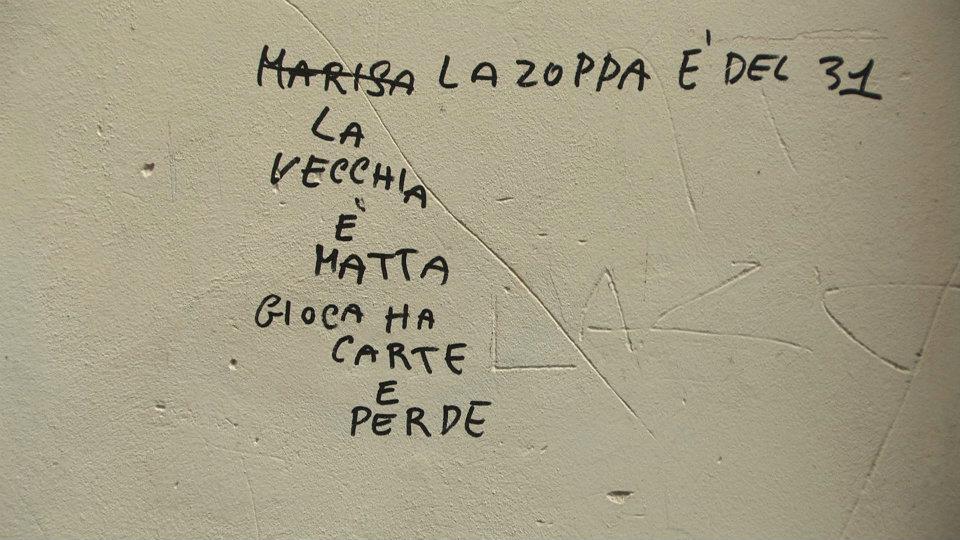 MARISA LA ZOPPA E' DEL 31
LA
VECCHIA
E'
MATTA
GIOCA HA
CARTE
E
PERDE
LAZIO